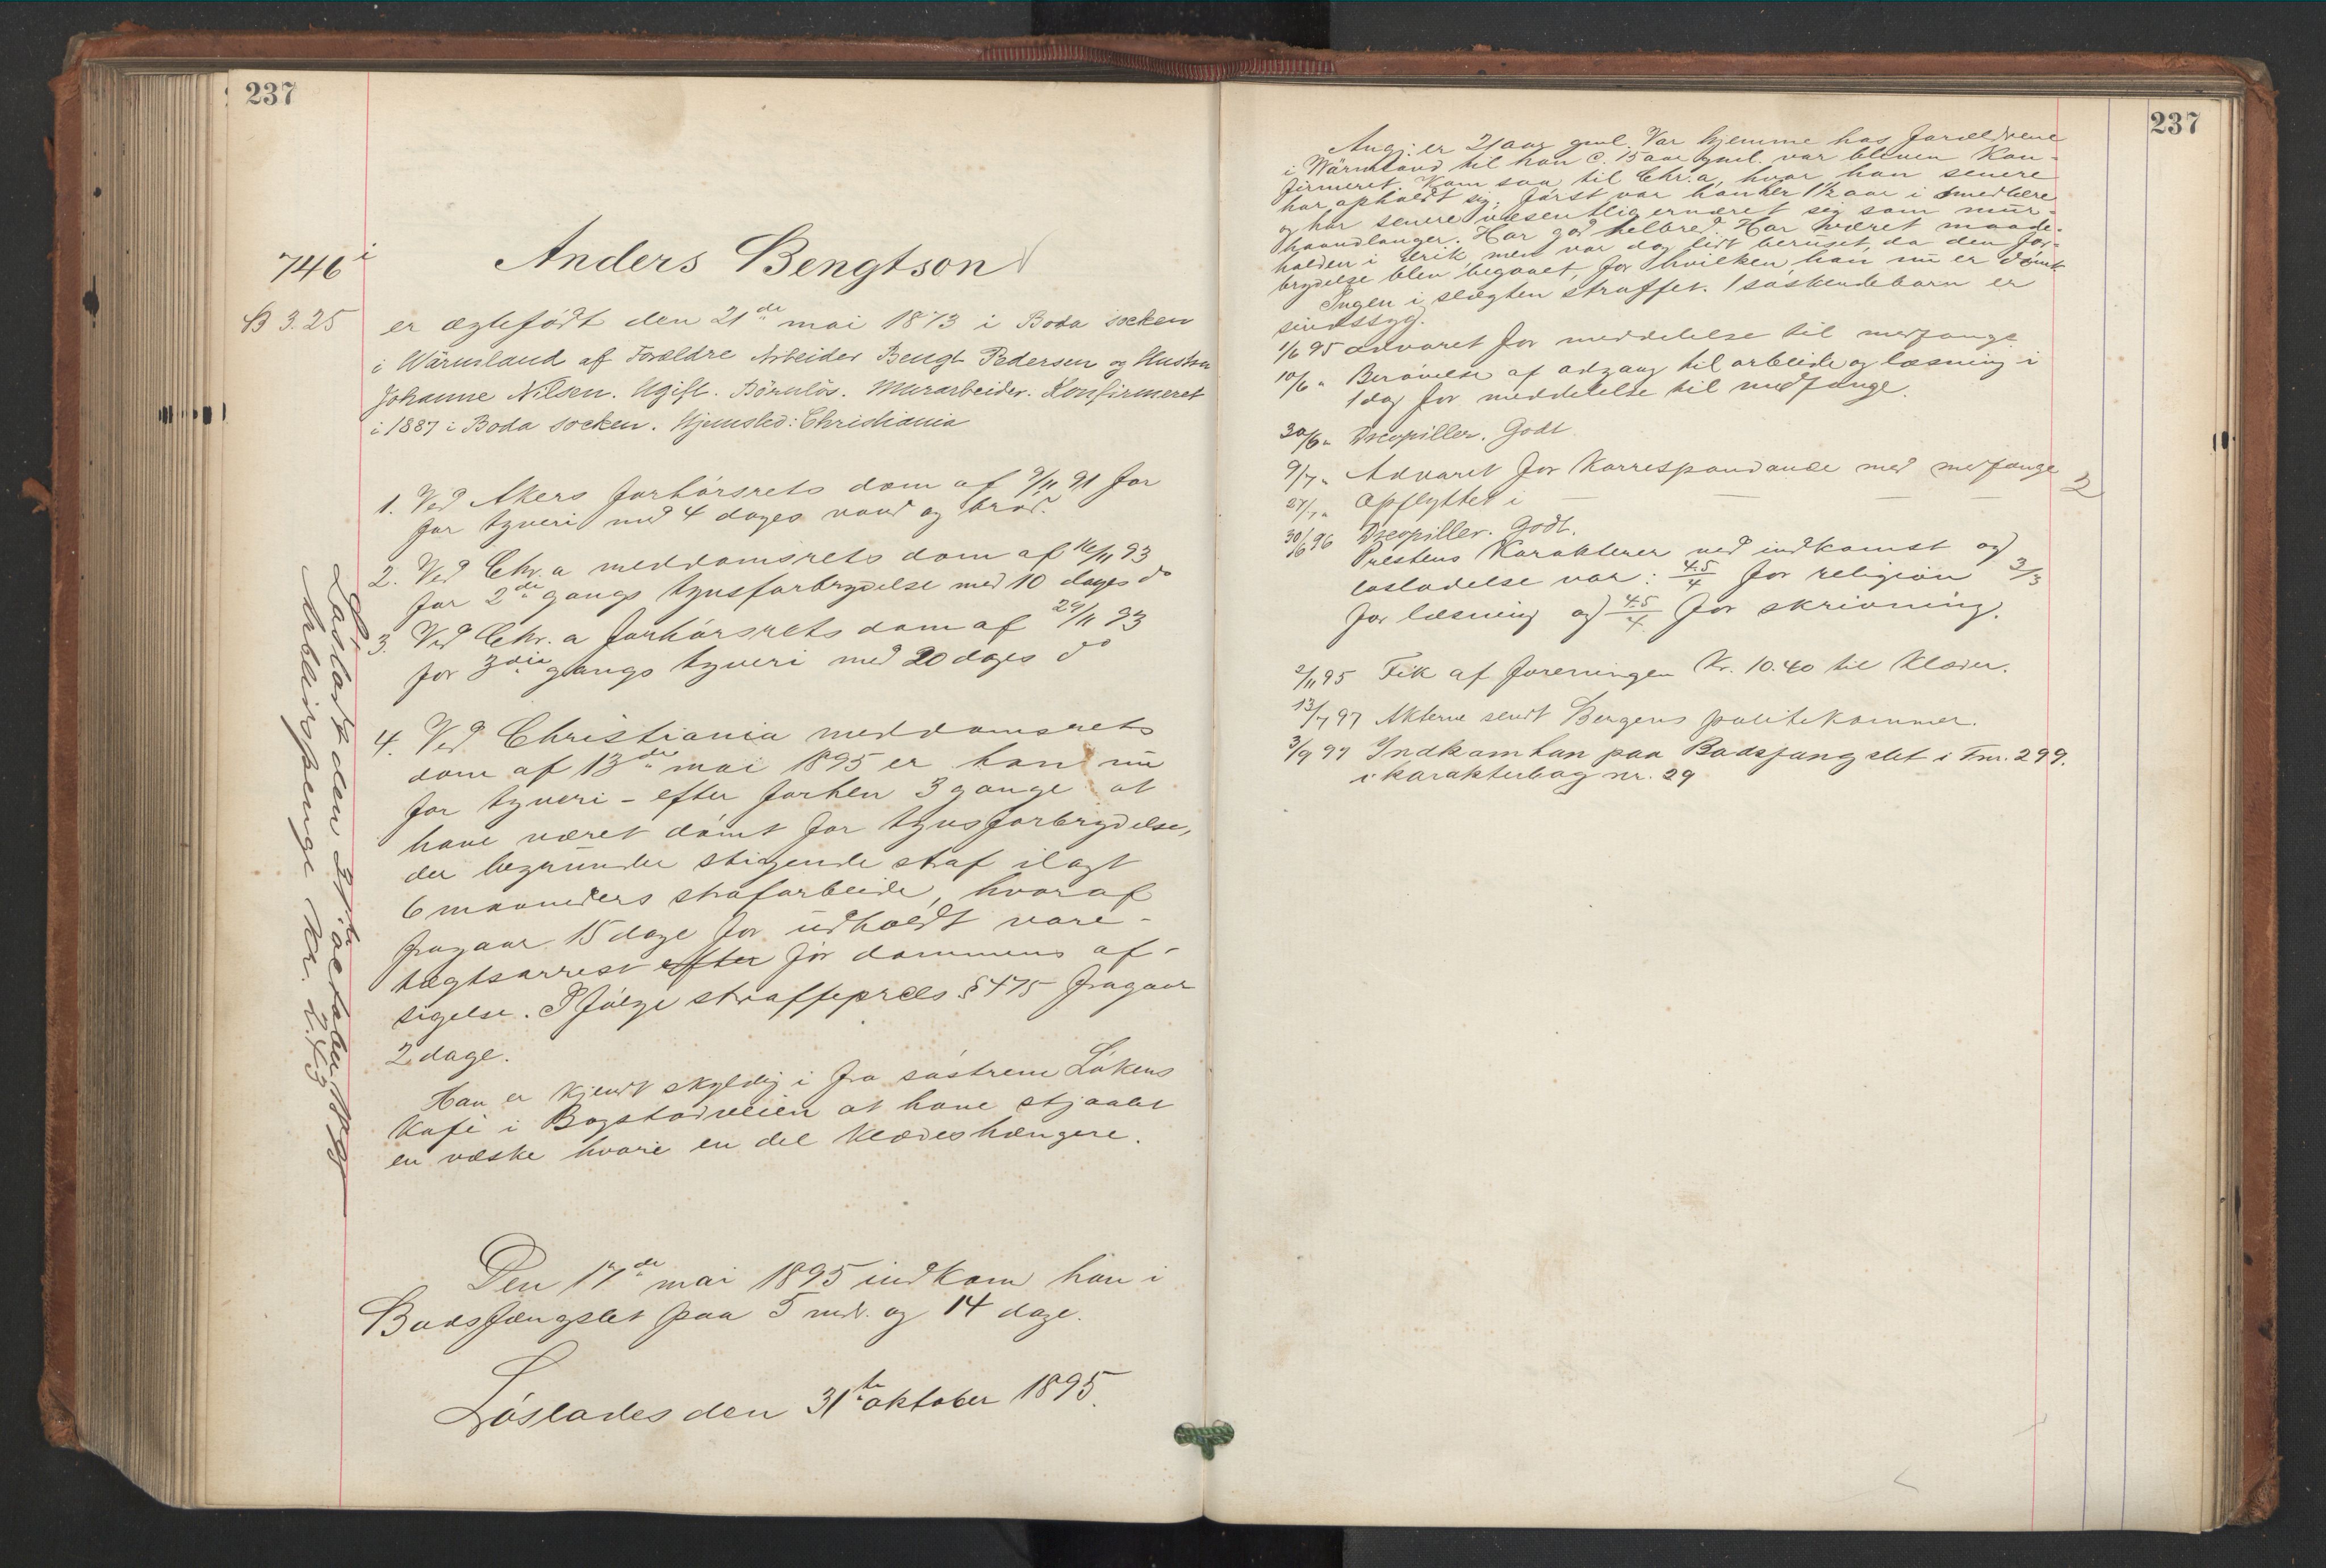 237
746 i
Anders Bengtson
B 3.25
er ægtefødt den 21de mai 1873 i Boda socken
i Wärmland af Forældre Arbeider Bengt Pedersen og Hustru
Johanne Nilsen. Ugift. Börnlös. Murarbeider. Konfirmeret
i 1887 i Boda socken. Hjemsted: Christiania
1. Ved Akers forhörsrets dom af 9/11 91 for
for tyveri med 4 dages vand og bröd.
2. Ved Chr.a meddomsrets dom af 16/11 93
for 2den gangs tyvsforbrydelse med 10 dages do
3. Ved Chr.a forhörsrets dom af 29/11 93
for 3die gangs tyveri med 20 dages do
4. Ved Christiania meddomsrets
dom af 13de mai 1895 er han nu
for tyveri - efter forhen 3 gange at
have været dömt for tyvsforbrydelse,
der begrunder stigende straf ilagt
6 maaneders strafarbeide, hvoraf
fragaar 15 dage for udholdt vare-
tægtsarrest efter för dommens af-
sigelse. Ifölge straffeprocls § 475 fragaar
2 dage.
Han er kjendt skyldig i fra söstrene Lökens
Kafé i Bogstadveien at have stjaalet
en væske hvori en del klædeshængere.
Den 17de mai 1895 indkom han i
Bodsfængslet paa 5 mdr. og 14 dage.
Löslades den 31te oktober 1895.
Lösladt den 31te october 1895
Arbeidspenge Kr. 2.43
237
Ang: er 21 aar gml. Var hjemme hos forældrene
i Wärmland til han c. 15 aar gml. var bleven kon-
firmeret. Kom saa til Chr.a, hvor han senere
har opholdt sig; först var han her 1 1/2 aar i smedlære
og har senere væsentlig ernæret sig som mur-
haandlanger. Har god helbred. Har været maade-
holden i drik, men var dog lidt beruset, da den for-
brydelse blev begaaet, for hvilken han nu er dömt.
Ingen i slægten straffet. 1 söskendebarn er
sindssyg.
1/6 95 advaret for meddelelse til medfange
10/6 " Berövelse af adgang til arbeide og læsning i
1 dag for meddelelse til medfange.
30/6 " Dscopiller. Godt
9/7 " Advaret for Korrespondance med medfange
27/7 " Opflyttet i — — — — 2
30/6 96 Dscopiller. Godt.
Prestens Karakterer ved indkomst og
löslatelse var: 4.5/4 for religion 2/3
for læsning og 4.5/4 for skrivning.
2/11 95 Fik af foreningen Kr. 10.40 til Klæder.
13/7 97 Akterne sendt Bergens politikammer.
3/9 97 Indkom han paa Bodsfængslet i Fnr. 299.
i karakterbog nr. 29